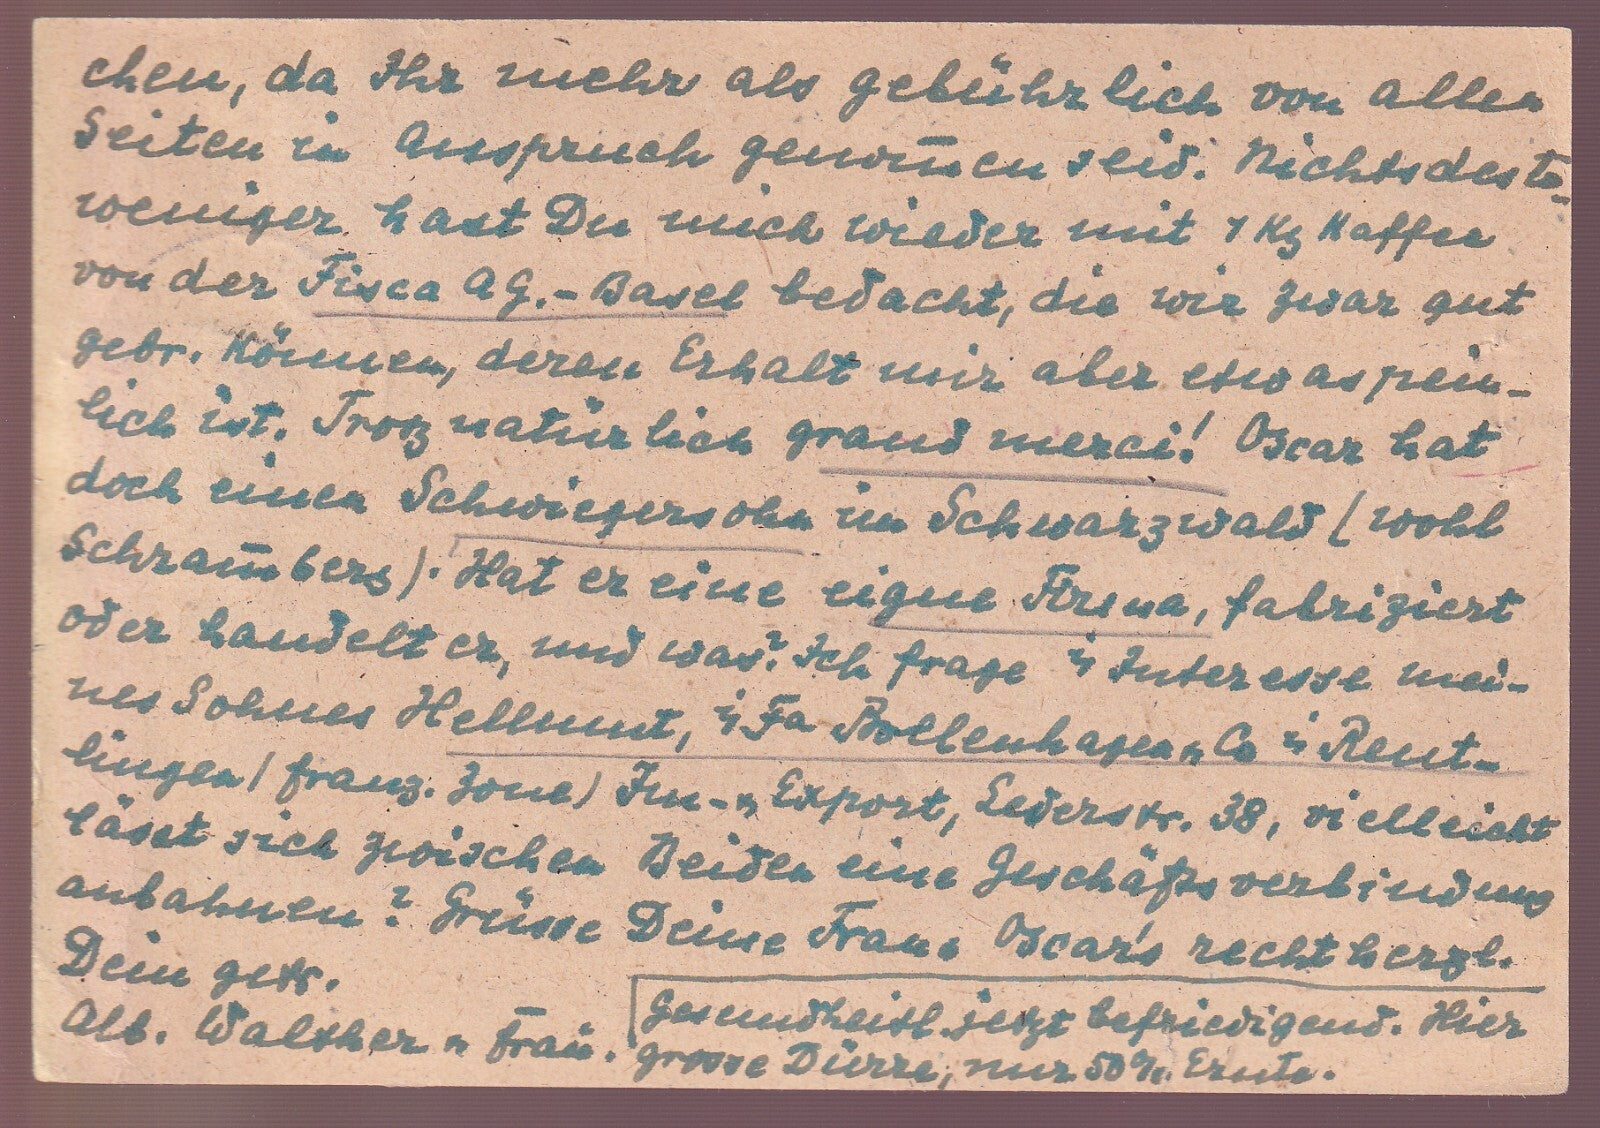 chen, da Ihr mehr als gebührlich von allen
Seiten in Anspruch genom̅en seid. Nichtsdesto-
weniger hast Du mich wieder mit 1 Kg Kaffee
von der Fisca AG.- Basel bedacht, die wir zwar gut
gebr. können, deren Erhalt mir aber etwas pein-
lich ist. Trotz natürlich grand merci! Oscar hat
doch einen Schwiegersohn im Schwarzwald (wohl
Schram̅berg). Hat er eine eigne Firma, fabriziert
oder handelt er, und was? Ich frage i/ Interesse mei-
nes Sohnes Hellmut, i/ Fa Bollenhagen u Co i/ Reut-
lingen (franz. Zone) Im- u Export, Lederstr. 38, vielleicht
lässt sich zwischen Beiden eine Geschäftsverbindung
anbahnen? Grüsse Deine Frau u Oscar's recht herzl.
Dein getr.
Alb. Walther u Frau.
Gesundheitl. jetzt befriedigend. Hier
grosse Dürre, nur 50% Ernte.